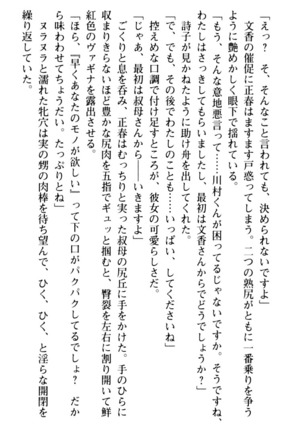 「えっ？　そ、そんなこと言われても、決められないですよ」
文香の催促に正春はますます戸惑ってしまう。二つの熟尻がともに一番乗りを争う
ように艶めかしく眼下で揺れている。
「もう、そんな意地悪言って……川村くんが困ってるじゃないですか。そうですね、
わたしはさっきしてもらいましたし、最初は文香さんからでどうでしょうか？」
詩子が見かねたように助け舟を出してくれた。
「で、でも、その後でわたしのことも……いっぱい、してくださいね」
控えめな口調で付け足すところが、彼女の可愛らしさだ。
「じゃあ、最初は叔母さんから――いきますよ」
ごくりと息を呑み、正春はむっちりと実った叔母の尻丘に手をかけた。手のひらに
収まりきらないほど豊かな尻肉を五指でギュッと掴むと、臀裂を左右に割り開いて鮮
紅色のヴァギナを露出させる。
「ほら、『早くあなたのモノが欲しい』って下の口がパクパクしてるでしょ？　だか
ら味わわせてちょうだい。たっぷりとね」
ヌラヌラと濡れた牝穴は実の甥の肉棒を待ち望んで、ひく、ひく、と淫らな開閉を
繰り返していた。